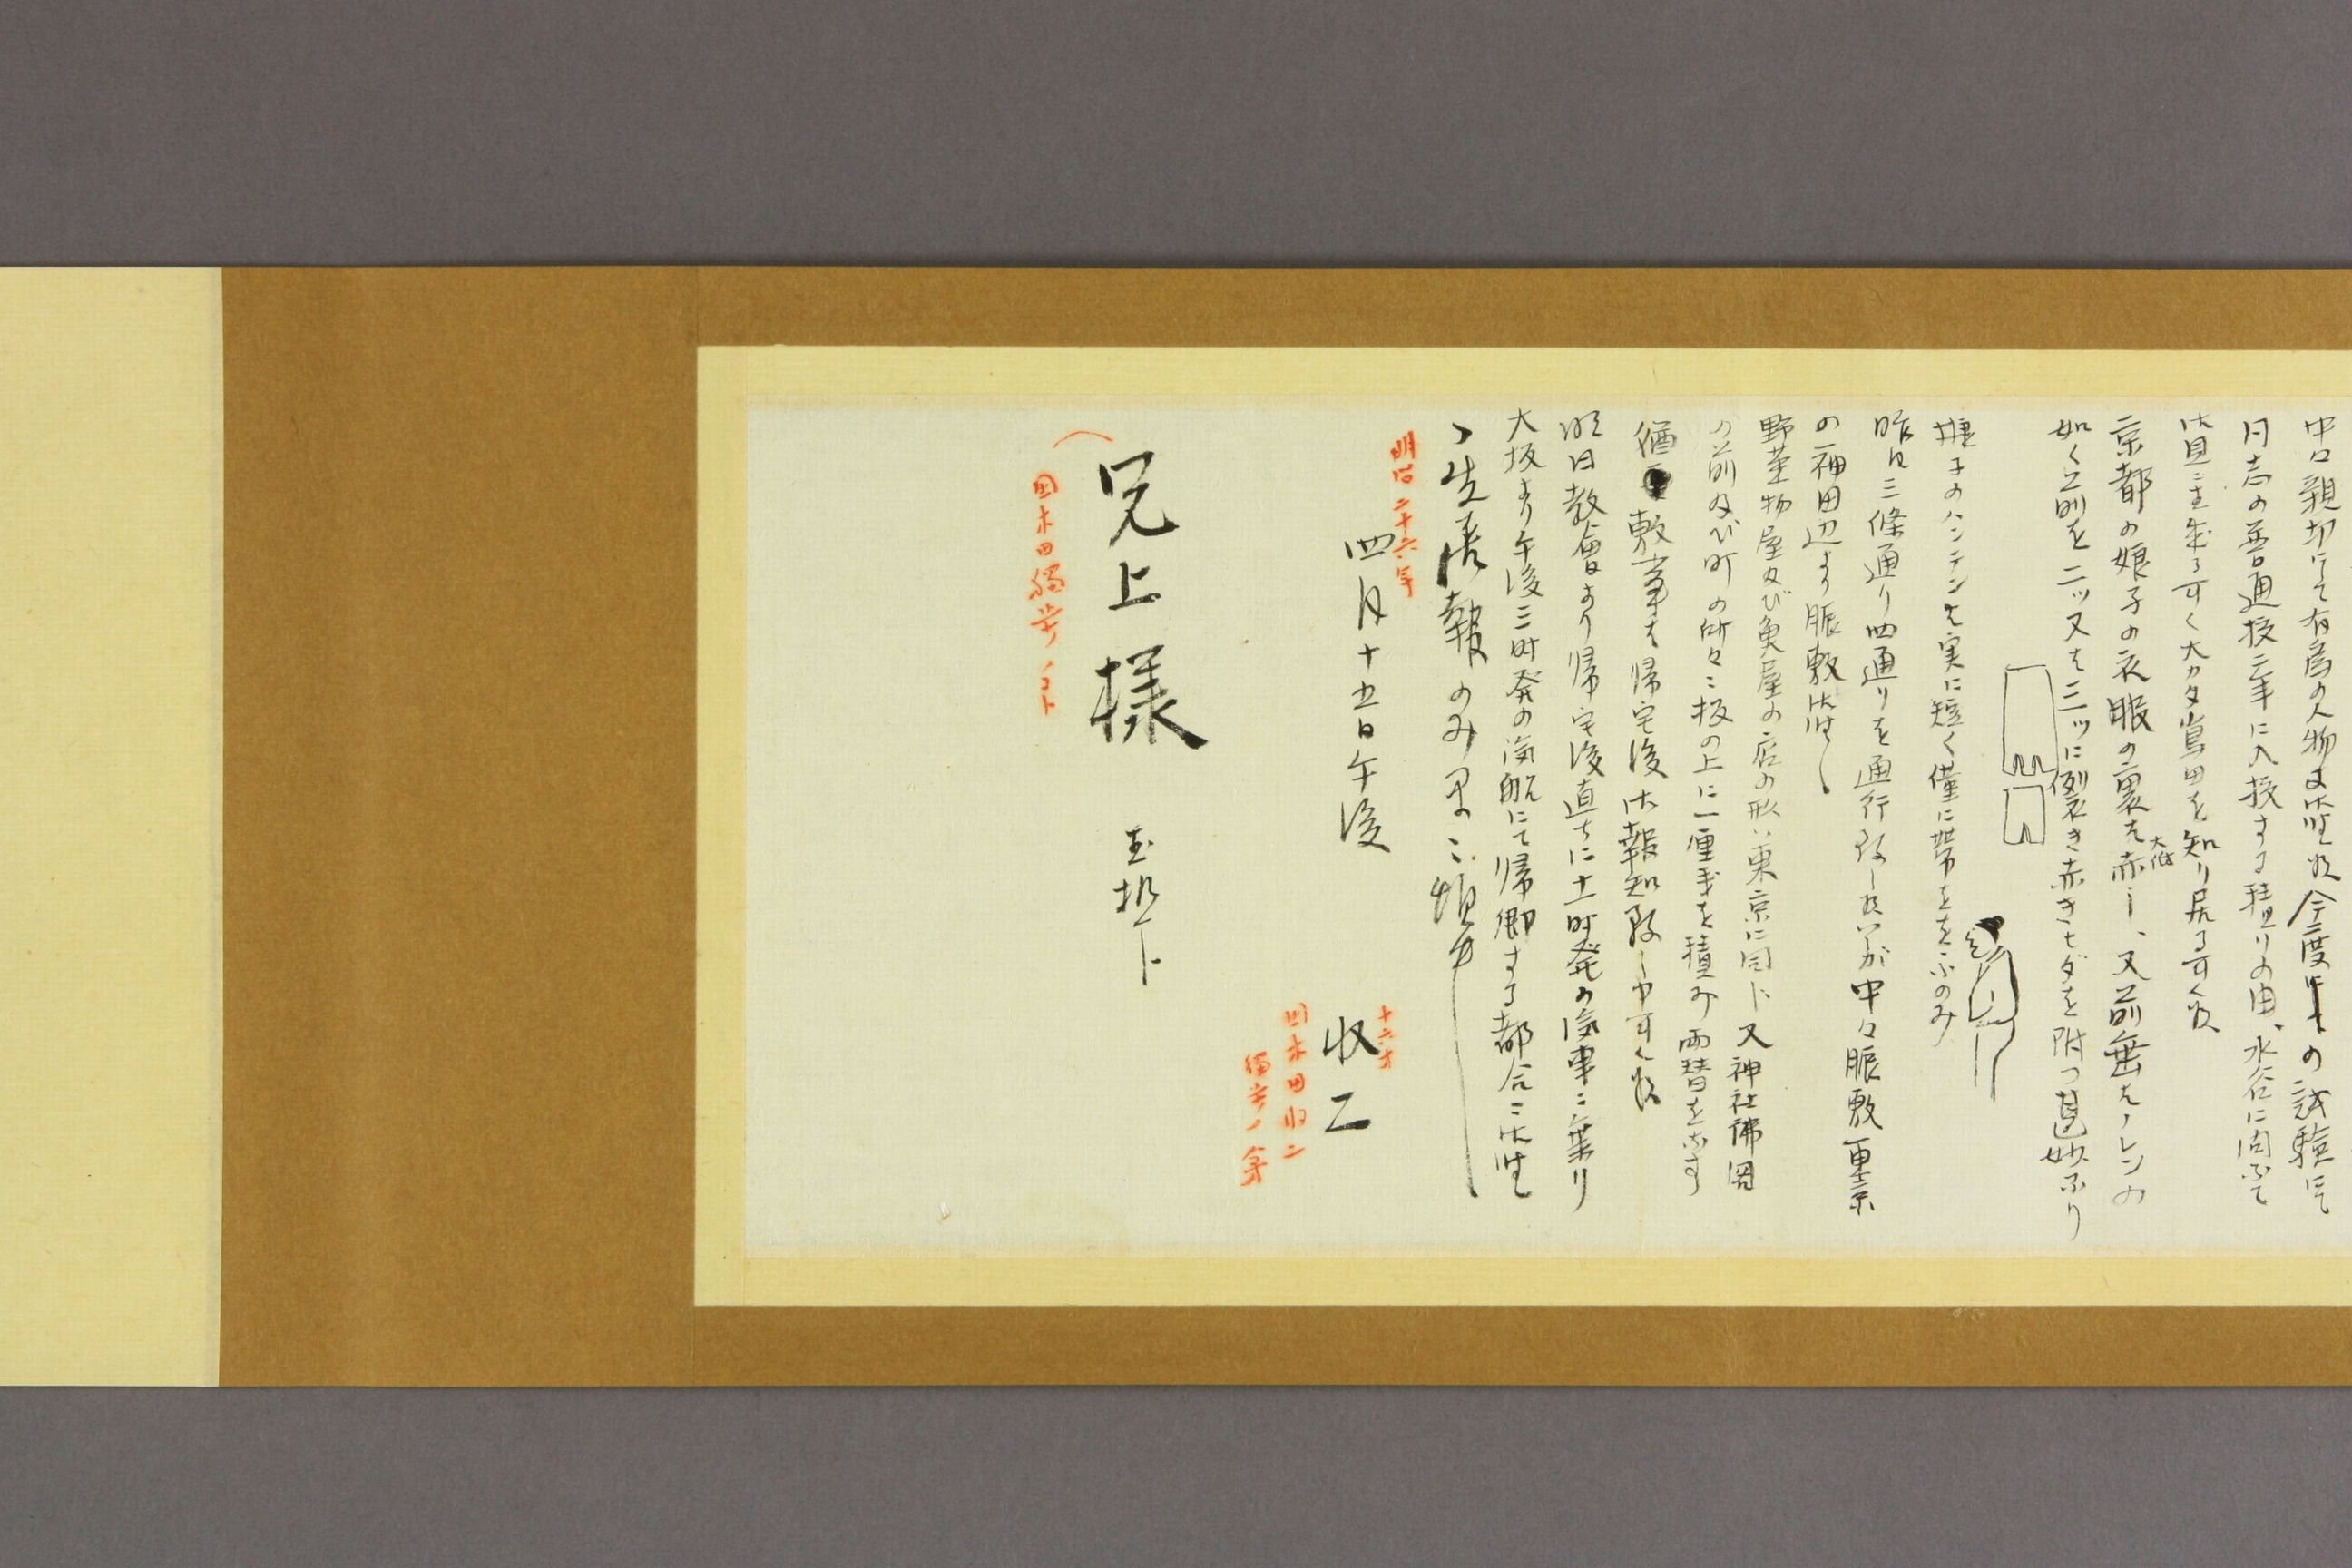 中々親切にて有為の人物に御坐候今度の試験にて
同志の普通校二年に入校する積りの由、水谷に問ふて
御覧になる可く大カタ富田を知り居る可く候
京都の娘子の衣服の裏は大低赤し、又前垂はノレンの
如く之前を二ッ又は三ッに裂き赤きヒダを附つ甚妙なり
娘子のハンテンは実に短く僅に帯をを
昨日三條通り四通りを通行致し候が中々賑敷東京
の神田辺より賑敷御坐候
野菜物屋及び魚屋の店の形は東京に同じ又神社佛閣
の前及び町の所々に板の上に一厘を積み両替をなす
委敷事は帰宅後御報知致し申可く候
明日教會より帰宅後直ちに十一時発の汽車に乗り
大坂より午後三時発の汽船にて帰郷する都合に御坐
報のみ
明治二十六年
四月十五日午後
十六才
收二
国木田收二
獨歩ノ弟
兄上様 玉机下
国木田獨歩ノコト